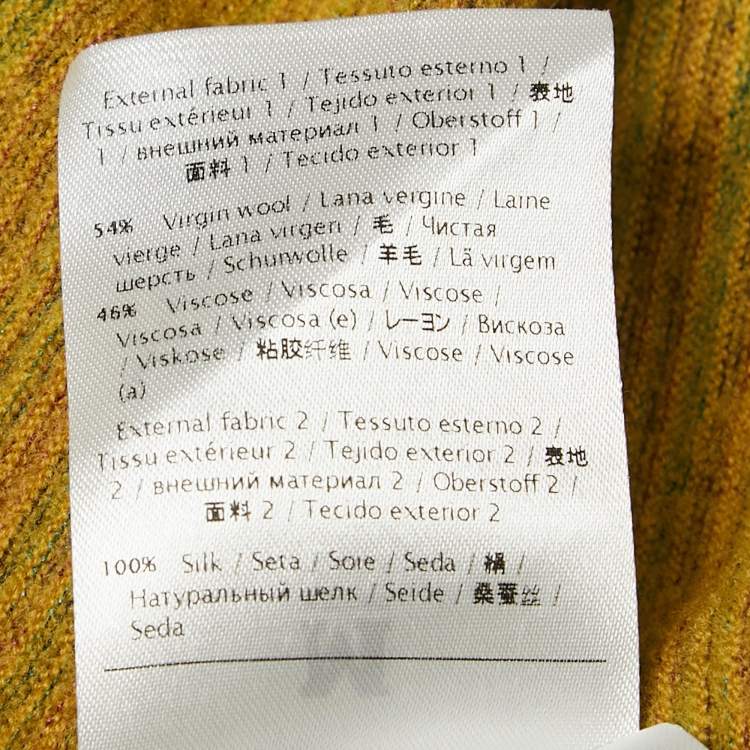 External fabric 1 / Tessuto esterno 1 /
Tissu extérieur 1 / Tejido exterior 1 / 表地
1 / внешний материал 1 / Oberstoff 1 /
面料 1 / Tecido exterior 1
54% Virgin wool / Lana vergine / Laine
vierge / Lana virgen / 毛 / Чистая
шерсть / Schurwolle / 羊毛 / Lã virgem
46% Viscose / Viscosa / Viscose /
Viscosa / Viscosa (e) / レーヨン / Вискоза
/ Viskose / 粘胶纤维 / Viscose / Viscose
(a)
External fabric 2 / Tessuto esterno 2 /
Tissu extérieur 2 / Tejido exterior 2 / 表地
2 / внешний материал 2 / Oberstoff 2 /
面料 2 / Tecido exterior 2
100% Silk / Seta / Soie / Seda / 絹 /
Натуральный шелк / Seide / 桑蚕丝 /
Seda